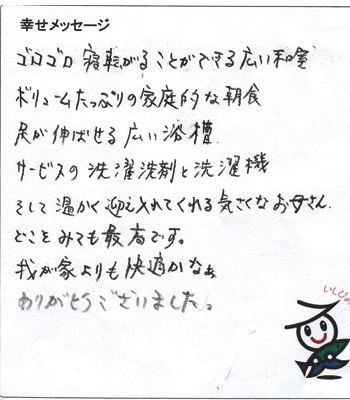 幸せメッセージ
ゴロゴロ寝転がることができる広い和室
ボリュームたっぷりの家庭的な朝食
足が伸ばせる広い浴槽
サービスの洗濯洗剤と洗濯機
そして温かく迎え入れてくれる気さくなお母さん。
どこをみても最高です。
我が家よりも快適かなぁ
ありがとうございました。
いしぴょん